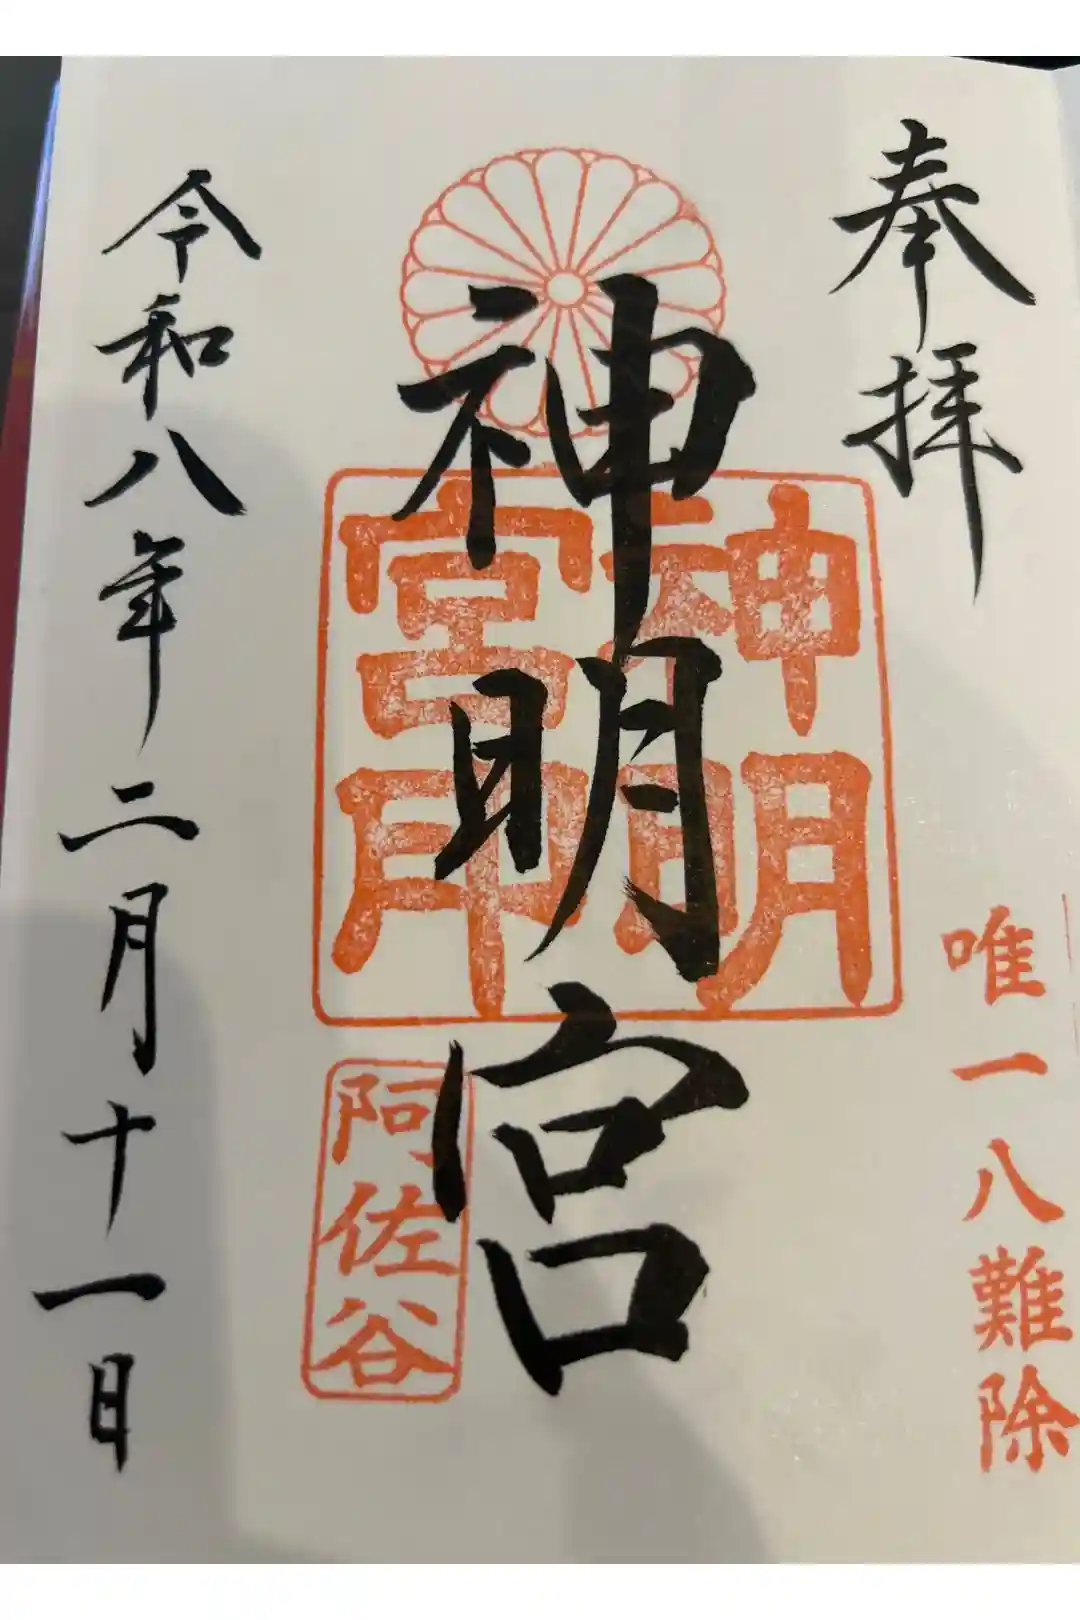 奉拝
唯一八難除
神明宮
神明宮印
阿佐谷
令和八年二月十一日